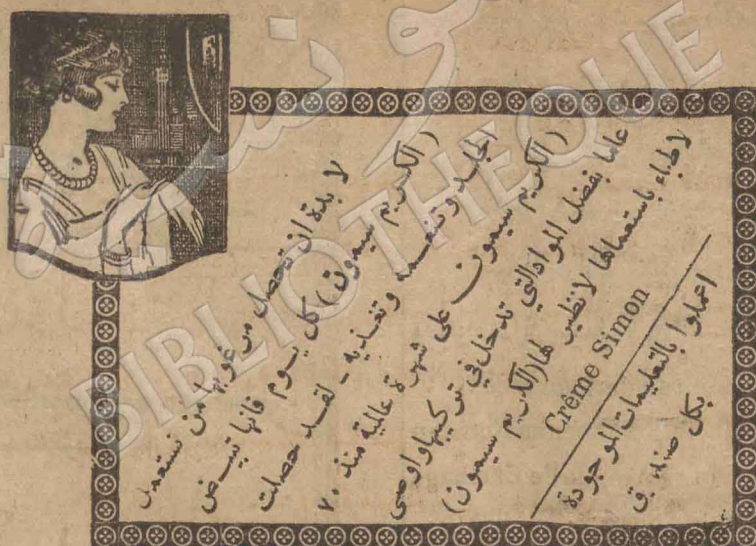 لا بدة ان تحصل من غوبها من تستعمل
(الكريم سيمون) كل يوم فانها تبيض
الجلد وتنعمه وتغذيه - لقد حصلت
(الكريم سيمون على شهرة عالمية منذ ٧٠
عاما بفضل المواد التي تدخل في تركيبها واوصى
لاطباء باستعمالها لا نظير لها (الكريم سيمون)
Crème Simon
اعملوا بالتعليمات الموجودة
بكل صندوق
BIBLIOTHEQUE